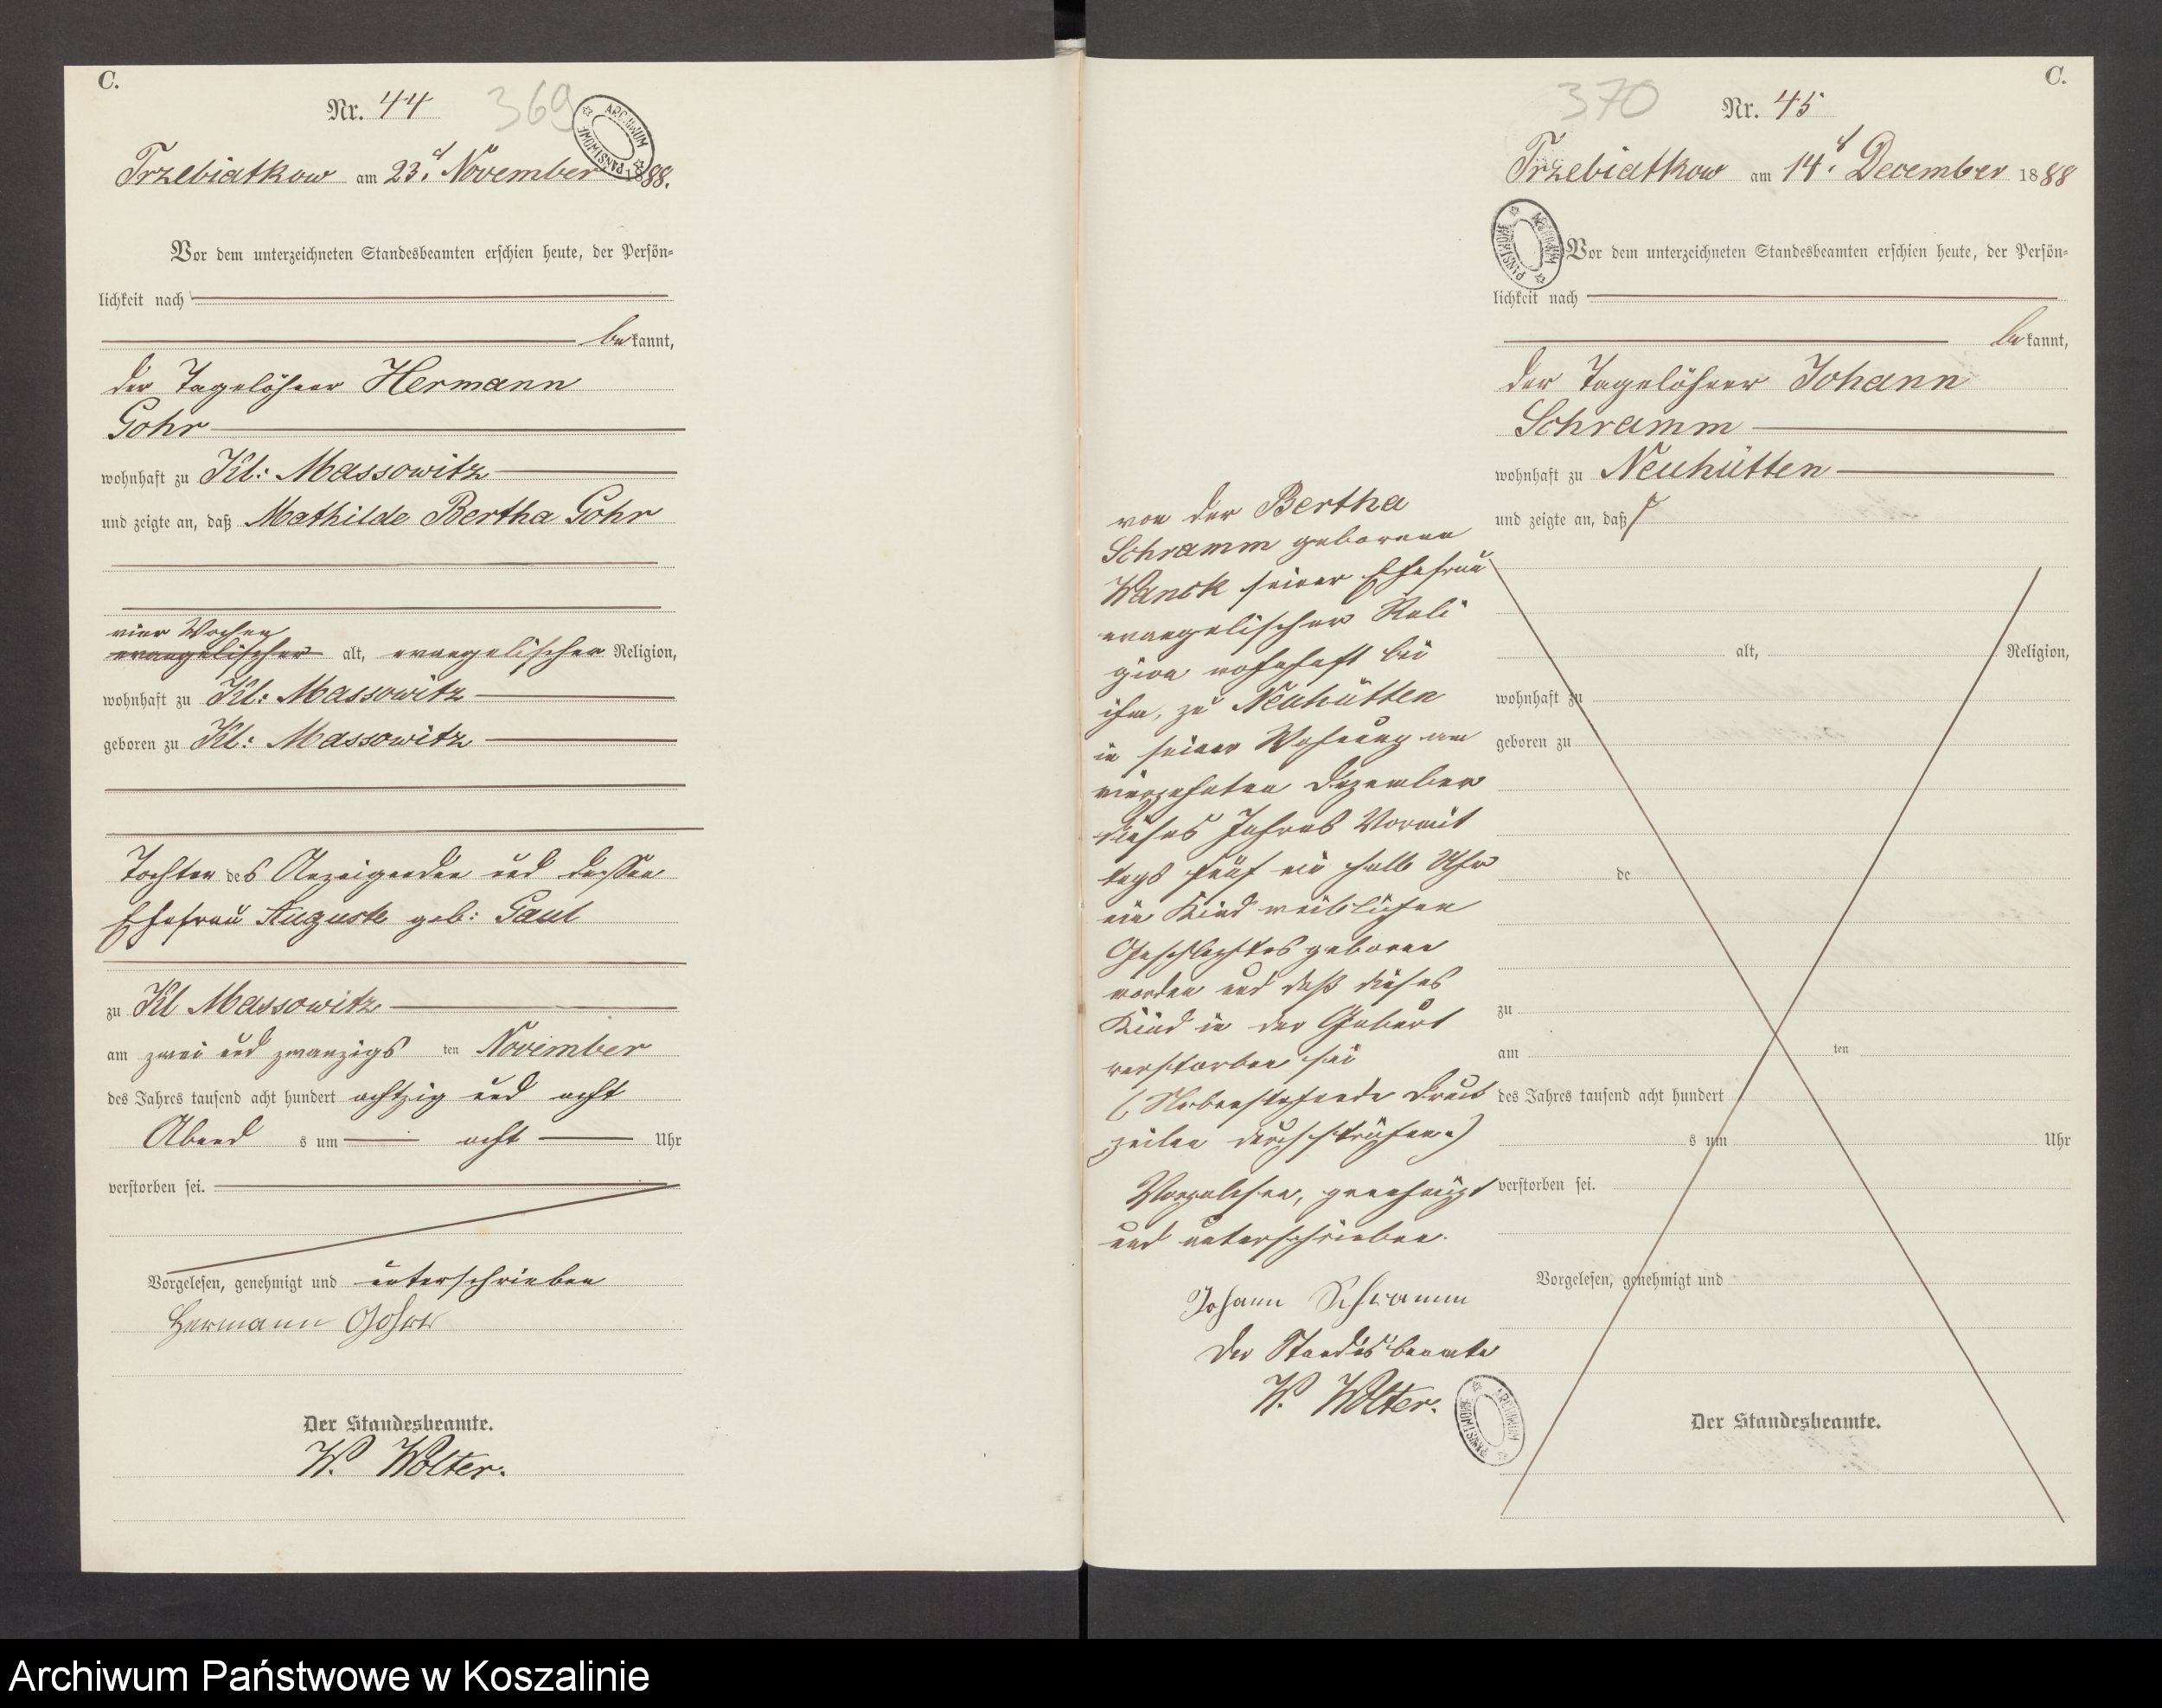 C.
Nr. 44
369
ARCHIWUM PAŃSTWOWE
Trzebiatkow am 23.t November 1888.
Vor dem unterzeichneten Standesbeamten erschien heute, der Persön=
lichkeit nach
bekannt,
der Tagelöhner Hermann
Gohr
wohnhaft zu Kl: Massowitz
und zeigte an, daß Mathilde Bertha Gohr
vier Wochen
evangelischer alt, evangelischer Religion,
wohnhaft zu Kl: Massowitz
geboren zu Kl: Massowitz
Tochter des Anzeigenden und dessen
Ehefrau Auguste geb: Gaul
zu Kl Massowitz
am zwei und zwanzigs ten November
des Jahres tausend acht hundert achtzig und acht
Abend s um acht Uhr
verstorben sei.
Vorgelesen, genehmigt und unterschrieben
Hermann Gohr
Der Standesbeamte.
W. Wolter.
C.
370
Nr. 45
Trzebiatkow am 14.t December 1888
ARCHIWUM PAŃSTWOWE
Vor dem unterzeichneten Standesbeamten erschien heute, der Persön=
lichkeit nach
bekannt,
der Tagelöhner Johann
Schramm
wohnhaft zu Neuhütten
und zeigte an, daß
von der Bertha
Schramm geborene
Wanck seiner Ehefrau
evangelischer Reli
gion wohnhaft bei
ihm, zu Neuhütten
in seiner Wohnung am
vierzehnten Dezember
dieses Jahres Vormit
tags fünf ein halb Uhr
ein Kind weiblichen
Geschlechtes geboren
worden und daß dieses
Kind in der Geburt
verstorben sei
(Nebenstehende Druck
zeilen durchstrichen.)
Vorgelesen, genehmigt
und unterschrieben.
Johann Schramm
Der Standesbeamte
W. Wolter.
ARCHIWUM PAŃSTWOWE
alt, Religion,
wohnhaft zu
geboren zu
de
zu
am ten
des Jahres tausend acht hundert
s um Uhr
verstorben sei.
Vorgelesen, genehmigt und
Der Standesbeamte.
Archiwum Państwowe w Koszalinie